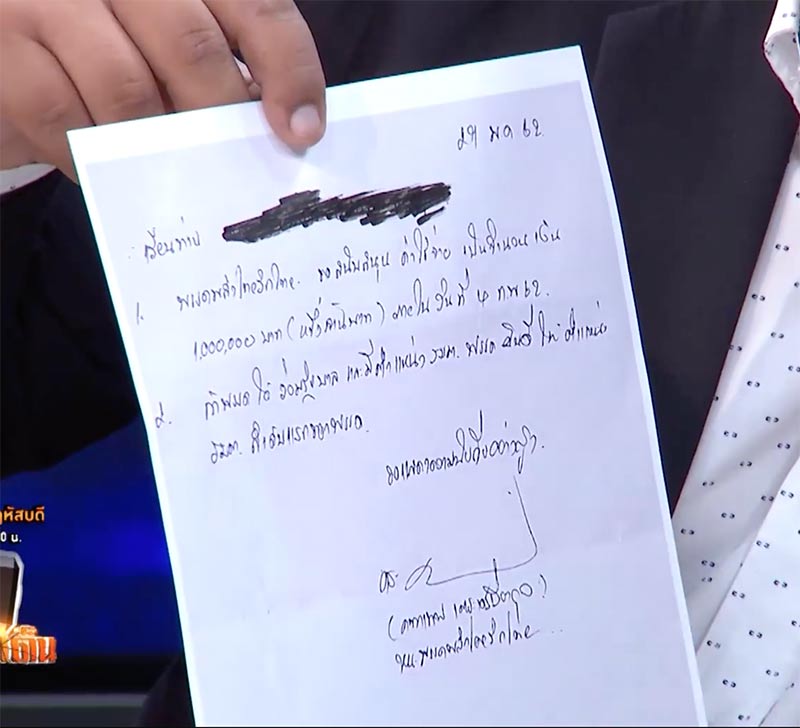 29 พค 62.
เรียนท่าน
1. พรรคพลังไทยรักไทย. ขอสนับสนุน ค่าใช้จ่าย เป็นจำนวนเงิน
1,000,000 บาท (หนึ่งล้านบาท) ภายใน วันที่ 4
2. ถ้าพรรค ได้ ร่วมรัฐบาล และมีตำแหน่ง รมต. พรรค ยินดี ให้ ตำแหน่ง
รมต.
ขอแสดงความนับถืออย่างสูง.
หน.พรรคพลังไทยรักไทย
หัสบดี
0 น.